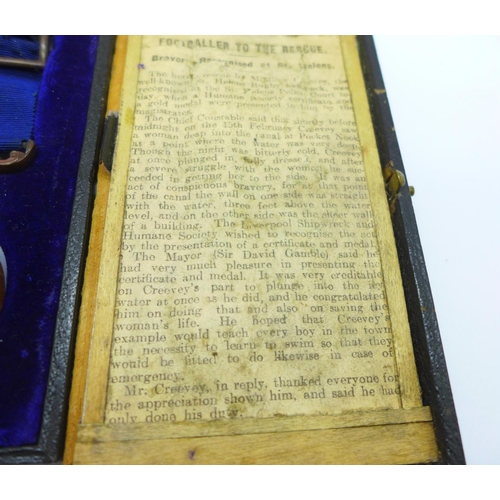 FOOTBALLER TO THE RESCUE.
Bravery Recognised at St. Helens.
The heroic rescue by Matthew Creevy, the
well-known St. Helens Rugby half-back, was
recognised at the St. Helens Police Court to-
day, when a Humane Society certificate and
a gold medal were presented to him by the
magistrates.
The Chief Constable said that shortly before
midnight on the 15th February Creevey saw
a woman deep into the canal at Pocket Nook
at a point where the water was very deep.
Though the night was bitterly cold, Creevey
at once plunged in, fully dressed, and after
a severe struggle with the woman, he suc-
ceeded in getting her to the side. It was an
act of conspicuous bravery, for at that point
of the canal the wall on one side was straight
with the water, three feet above the water
level, and on the other side was the sheer wall
of a building. The Liverpool Shipwreck and
Humane Society wished to recognise the act
by the presentation of a certificate and medal.
The Mayor (Sir David Gamble) said he
had very much pleasure in presenting the
certificate and medal. It was very creditable
on Creevey's part to plunge into the icy
water at once as he did, and he congratulated
him on doing that and also on saving the
woman's life. He hoped that Creevey's
example would teach every boy in the town
the necessity to learn to swim so that they
would be fitted to do likewise in case of
emergency.
Mr. Creevey, in reply, thanked everyone for
the appreciation shown him, and said he had
only done his duty.